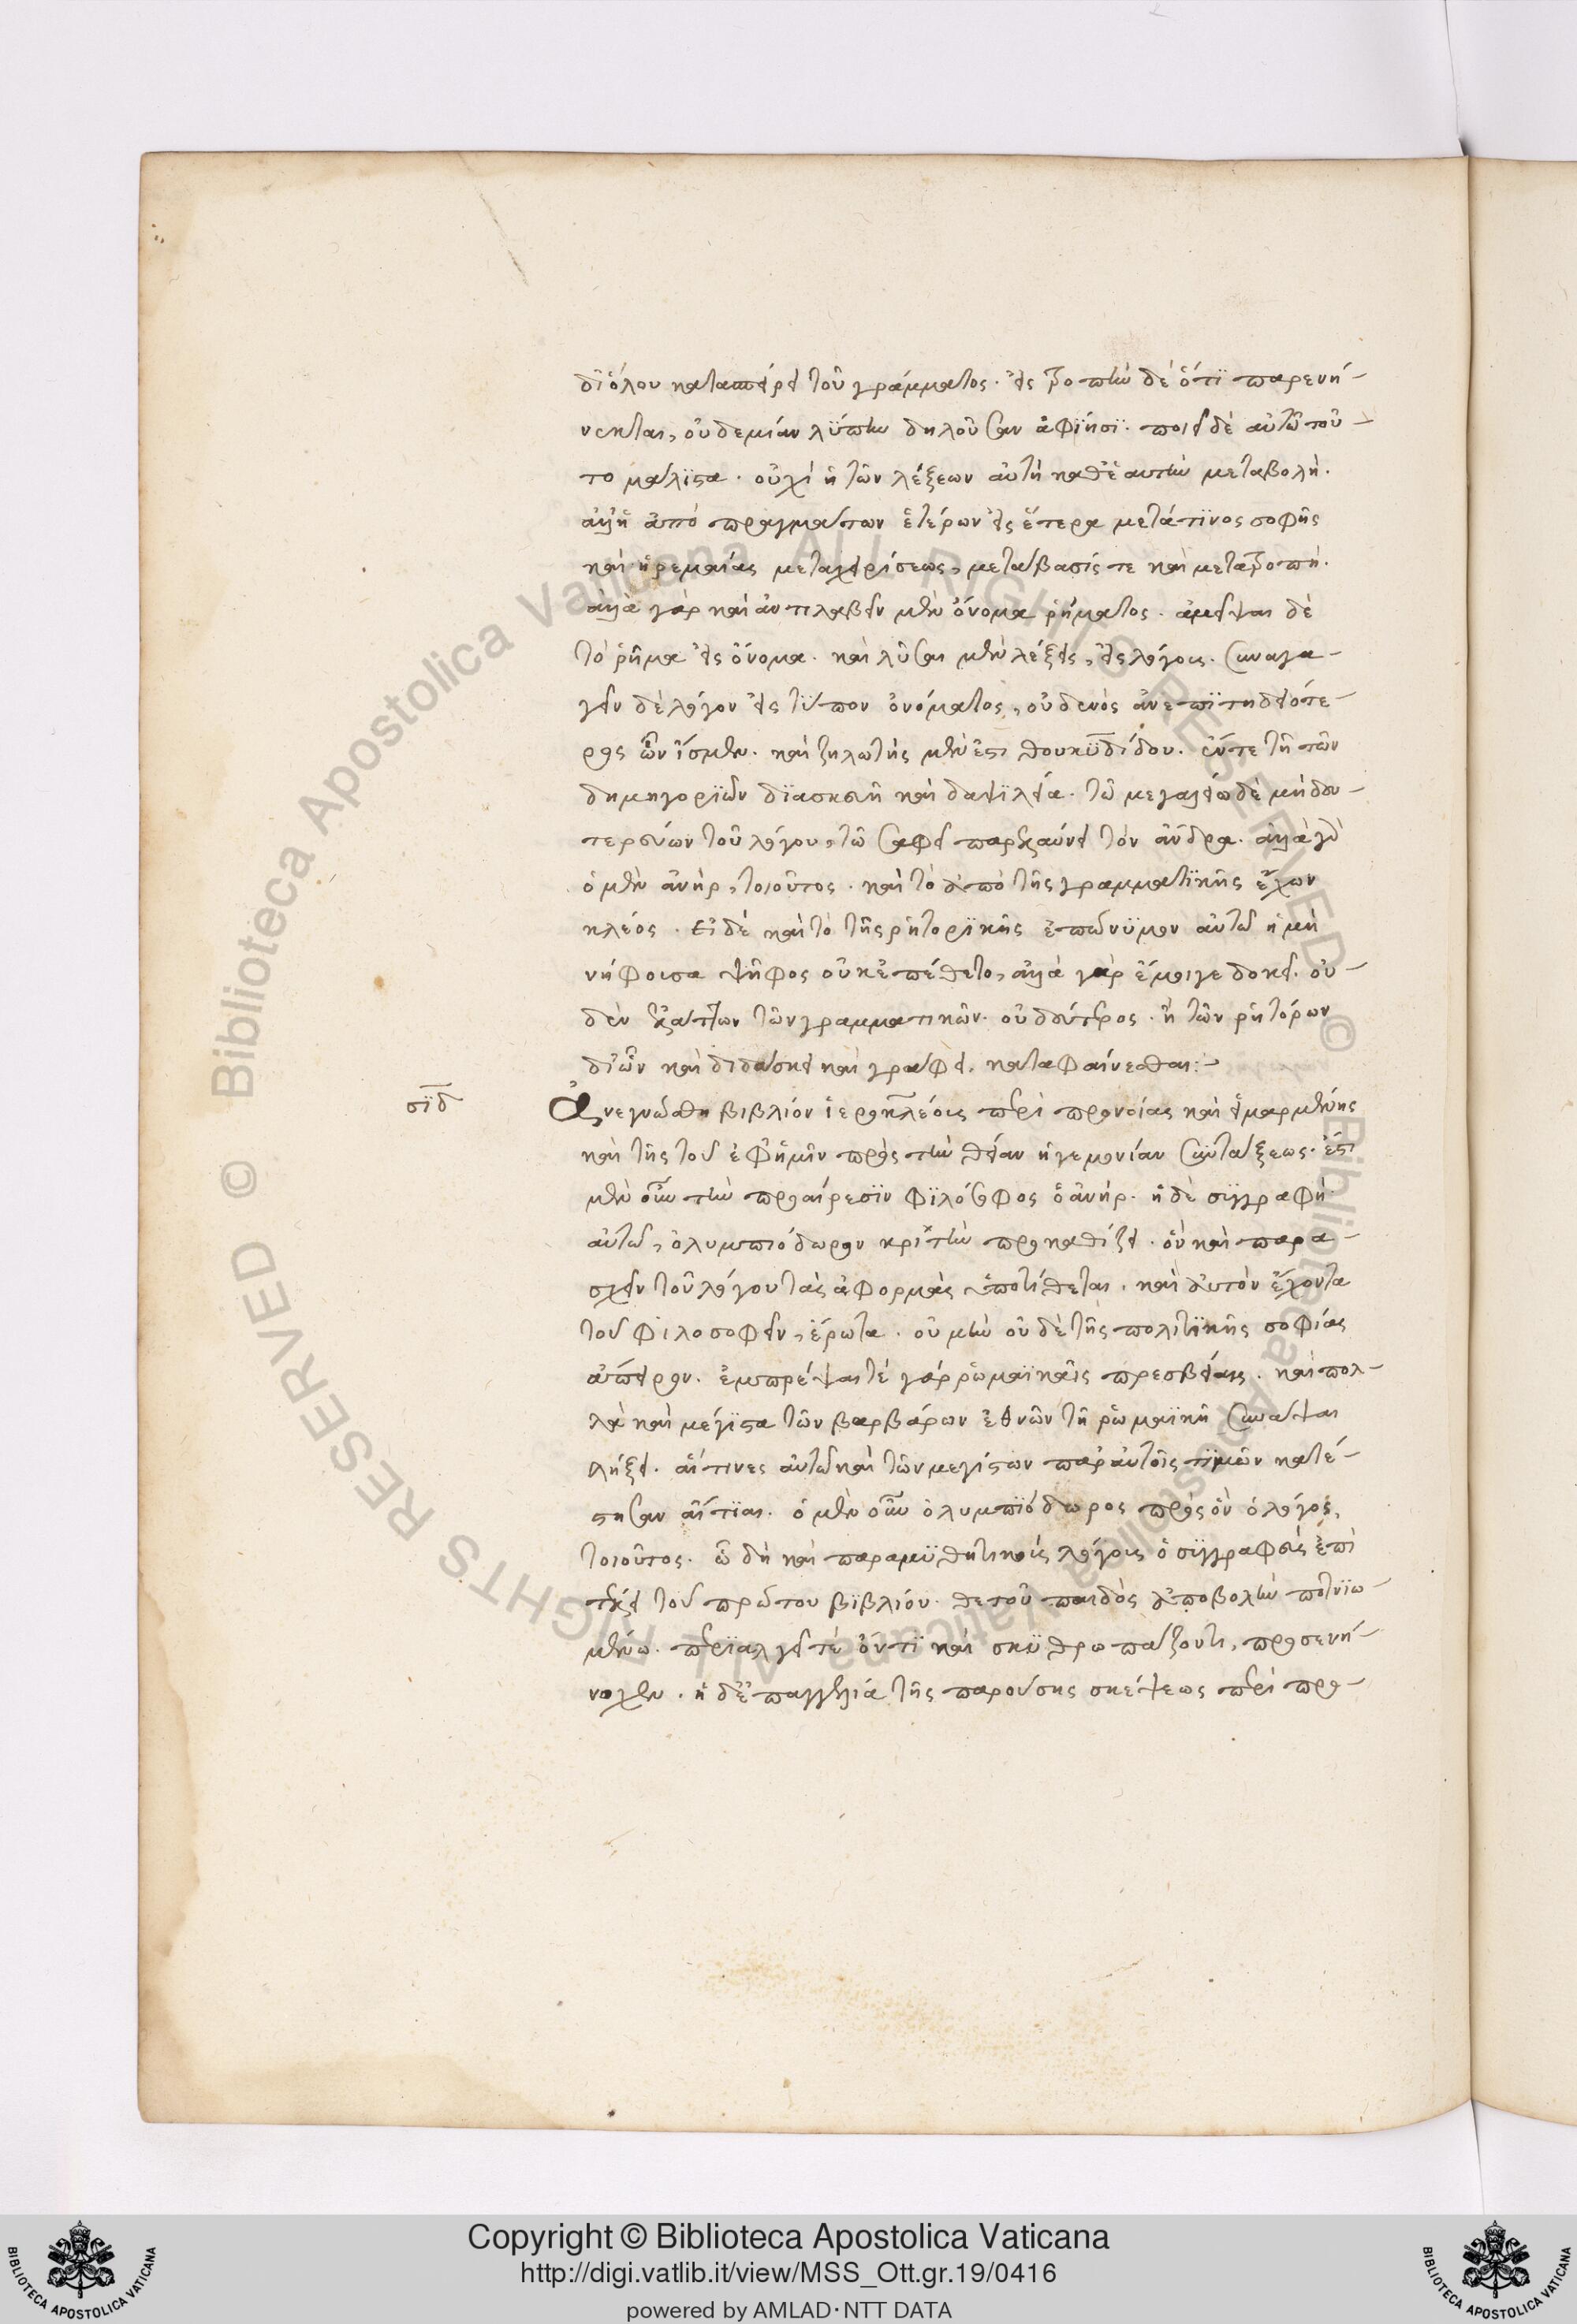 δι' ὅλου κατασπείρει τοῦ γράμματος. εἰς τροπὴν δὲ ὅτι παρενή-
νεκται, οὐδεμίαν λύπην δηλοῦσαν ἀφίησι. ποιεῖ δὲ αὐτῷ τοῦ-
το μάλιστα. οὐχὶ ἡ τῶν λέξεων αὐτὴ καθ' ἑαυτὴν μεταβολή.
ἀλλ' ἡ ἀπὸ πραγμάτων ἑτέρων εἰς ἕτερα μετά τινος σοφῆς
καὶ ἠρεμαίας μεταχειρίσεως, μετάβασίς τε καὶ μετατροπή.
ἀλλὰ γὰρ καὶ ἀντιλαβεῖν μὲν ὄνομα ῥήματος. ἀμεῖψαι δὲ
τὸ ῥῆμα εἰς ὄνομα. καὶ λῦσαι μὲν λέξεις, εἰς λόγους. συναγα-
γεῖν δὲ λόγον εἰς τύπον ὀνόματος, οὐδενὸς ἀνεπιτηδειότε-
ρος ὧν ἴσμεν. καὶ ζηλωτὴς μέν ἐστι θουκυδίδου. ἔν τε τῇ τῶν
δημηγοριῶν διασκευῇ καὶ δαψιλείᾳ. τῷ μεγαλείῳ δὲ μὴ δευ-
τερεύων τοῦ λόγου, τῷ σαφεῖ παρελαύνει τὸν ἄνδρα. ἀλλὰ γὰρ
ὁ μὲν ἀνὴρ, τοιοῦτος. καὶ τὸ ἀπὸ τῆς γραμματικῆς ἔχων
κλέος. εἰ δὲ καὶ τὸ τῆς ῥητορικῆς ἐπώνυμον αὐτῷ ἡ μὴ
νήφουσα ψῆφος οὐκ ἐπέθετο, ἀλλὰ γὰρ ἔμοιγε δοκεῖ. οὐ-
δὲν ἐλάττων τῶν γραμματικῶν. οὐ δεύτερος. ἢ τῶν ῥητόρων
δι' ὧν καὶ διδάσκει καὶ γράφει. καταφαίνεσθαι:-
σιδ Ἀνεγνώσθη βιβλίον ἱεροκλέους περὶ προνοίας καὶ εἱμαρμένης
καὶ τῆς τοῦ ἐφ' ἡμῖν πρὸς τὴν θείαν ἡγεμονίαν συντάξεως. ἔστι
μὲν οὖν τὴν προαίρεσιν φιλόσοφος ὁ ἀνήρ. ἡ δὲ συγγραφὴ
αὐτῷ, ὀλυμπιόδωρον κριτὴν προκαθίζει. ὃν καὶ παρα-
σχεῖν τοῦ λόγου τὰς ἀφορμὰς ὑποτίθεται. καὶ αὐτὸν ἔχοντα
τοῦ φιλοσοφεῖν, ἔρωτα. οὐ μὴν οὐδὲ τῆς πολιτικῆς σοφίας
ἄπειρον. ἐμπρέψαι τέ γὰρ ῥωμαϊκαῖς πρεσβείαις. καὶ πολ-
λὰ καὶ μέγιστα τῶν βαρβάρων ἐθνῶν τῇ ῥωμαϊκῇ συνάψαι
λήξει. αἵτινες αὐτῷ καὶ τῶν μεγίστων παρ' αὐτοῖς τιμῶν κατέ-
στησαν αἴτιαι. ὁ μὲν οὖν ὀλυμπιόδωρος πρὸς ὃν ὁ λόγος,
τοιοῦτος. ᾧ δὴ καὶ παραμυθητικοὺς λόγους ὁ συγγραφεὺς ἐπὶ
τέλει τοῦ πρώτου βιβλίου. θετοῦ παιδὸς ἀποβολὴν πενθου-
μένῳ. περιαλγεῖ τε ὄντι καὶ σκυθρωπάζοντι, προσενή-
νοχεν. ἡ δὲ ἐπαγγελία τῆς παρούσης σκέψεως περὶ προ-
Copyright © Biblioteca Apostolica Vaticana
http://digi.vatlib.it/view/MSS_Ott.gr.19/0416
powered by AMLAD·NTT DATA